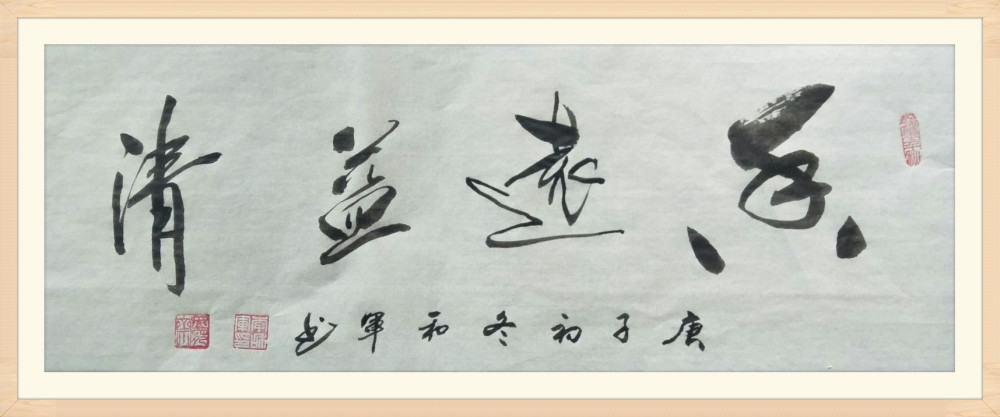 香遠益清
庚子初冬和軍书